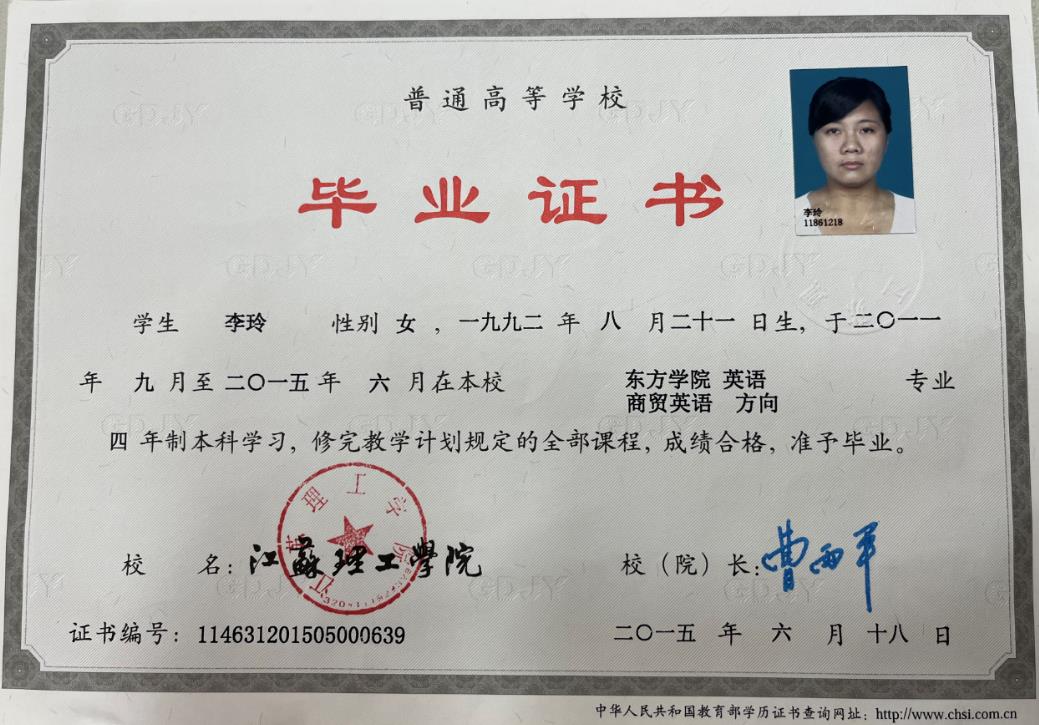 普通高等学校
毕业证书
李玲
11861218
学生 李玲 性别 女 , 一九九二 年 八 月二十一 日生, 于二〇一一
年 九 月至 二〇一五 年 六 月在本校 东方学院 英语 专业
商贸英语 方向
四 年制本科学习, 修完教学计划规定的全部课程, 成绩合格, 准予毕业。
校 名: 江蘇理工學院 校（院）长:
证书编号: 114631201505000639 二〇一五 年 六 月 十八 日
中华人民共和国教育部学历证书查询网址: http://www.chsi.com.cn
GDJY